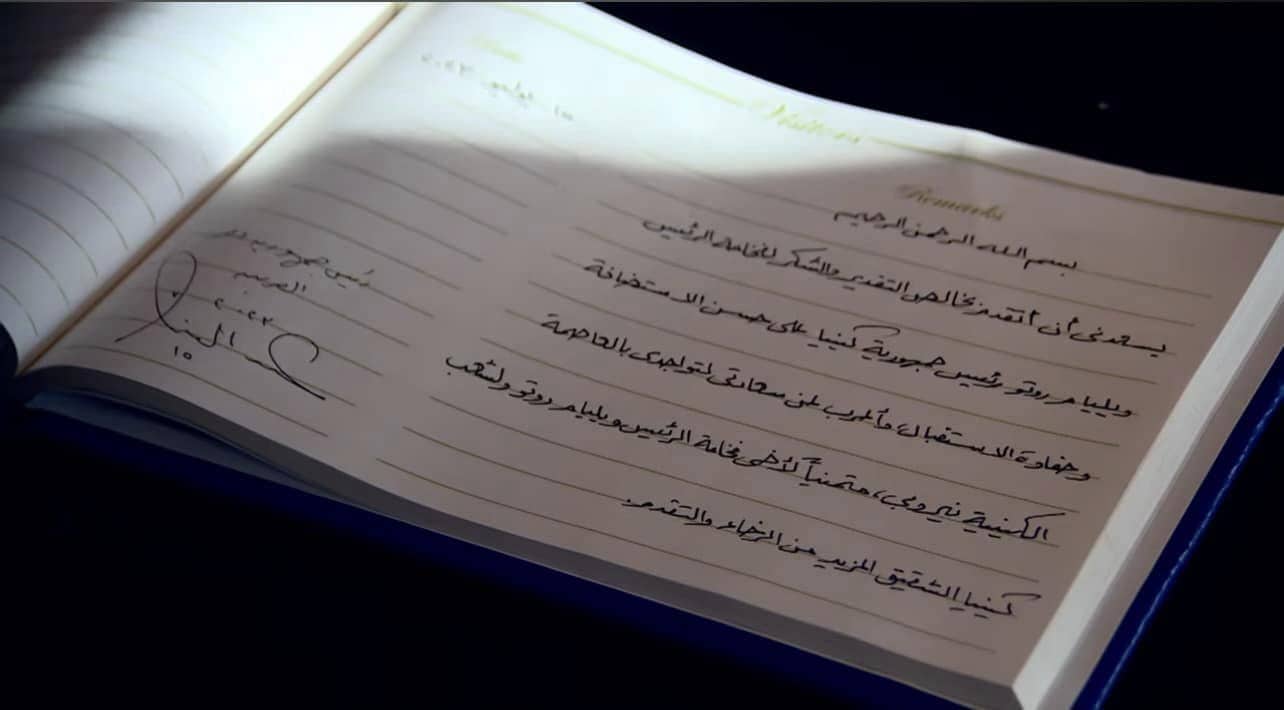 ١٥ يوليو ٢٠٢٣
Remarks
بسم الله الرحمن الرحيم
يسعدنى أن أتقدم بخالص التقدير والشكر لفخامة الرئيس
ويليام روتو رئيس جمهورية كينيا على حسن الاستضافة
وحفاوة الاستقبال، وأعرب عن سعادتى لتواجدى بالعاصمة
الكينية نيروبى، متمنياً لأخى فخامة الرئيس ويليام روتو ولشعب
كينيا الشقيق المزيد من الرخاء والتقدم.
رئيس جمهورية مصر
العربية